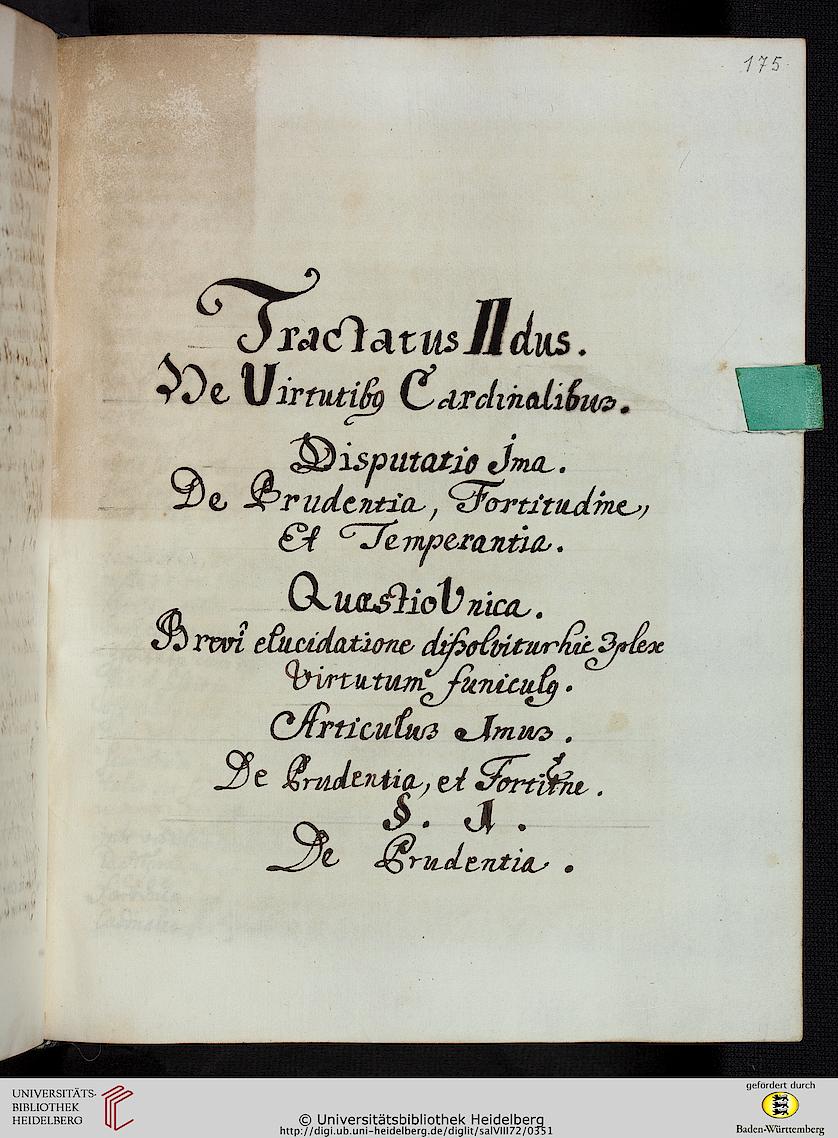 175
Tractatus IIdus.
De Virtutibꝯ Cardinalibus.
Disputatio Ima.
De Prudentia, Fortitudine,
Et Temperantia.
Quæstio Unica.
Brevî elucidatione dißolvitur hic 3plex
Virtutum funiculꝯ.
Articulus 1mus.
De Prudentia, et Fortitne.
§. 1.
De Prudentia.
UNIVERSITÄTS-
BIBLIOTHEK
HEIDELBERG
© Universitätsbibliothek Heidelberg
http://digi.ub.uni-heidelberg.de/diglit/salVIII72/0351
gefördert durch
Baden-Württemberg